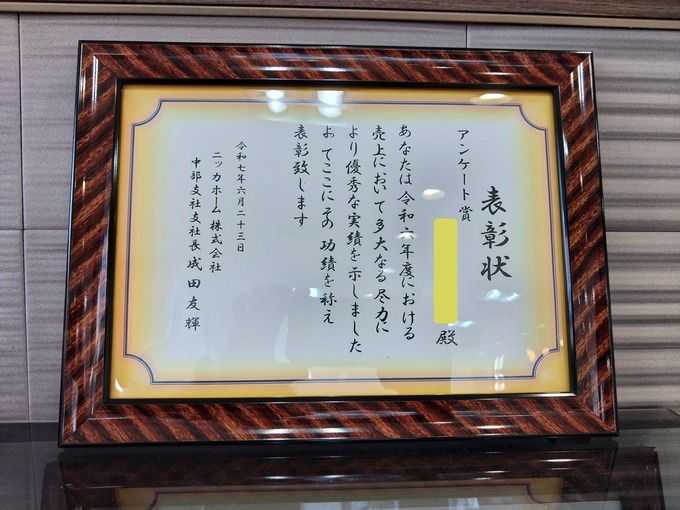 表彰状
アンケート賞
殿
あなたは令和六年度における
売上において多大なる尽力に
より優秀な実績を示しました
よってここにその功績を称え
表彰致します
令和七年六月二十三日
ニッカホーム株式会社
中部支社支社長 成田友輝